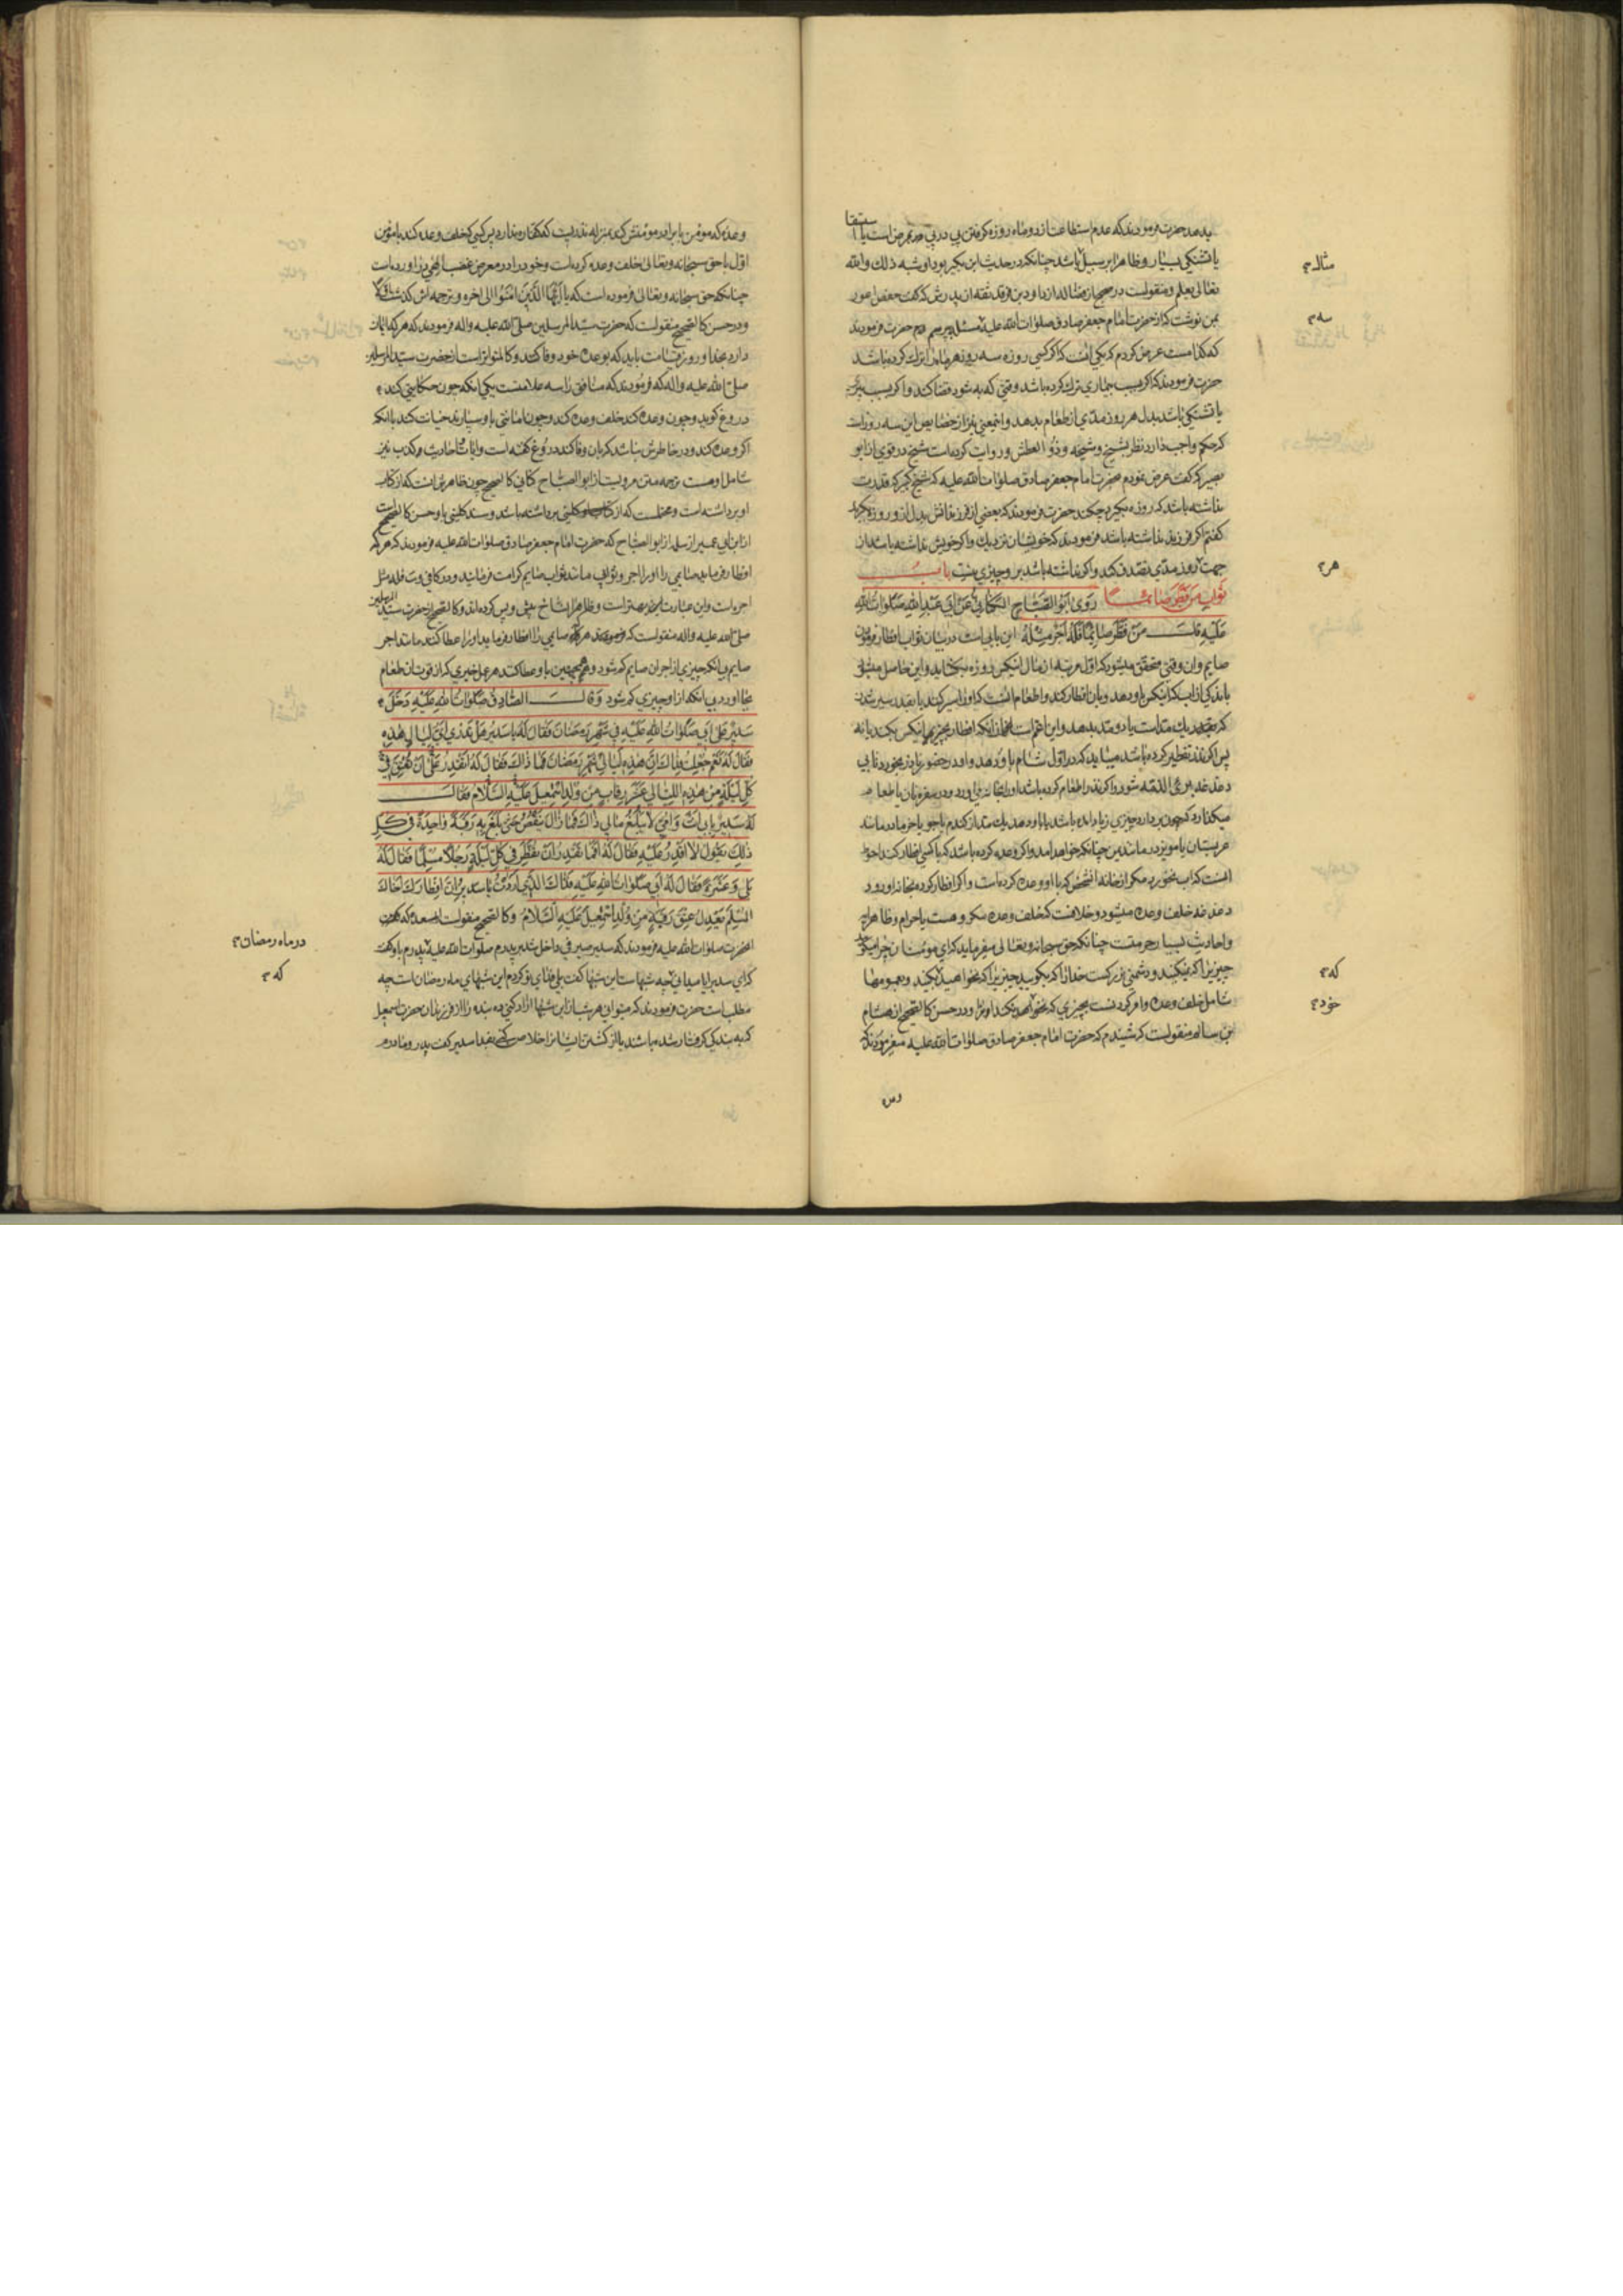 بدهد حضرت فرمودند که عدم استطاعت از دو ماه روزه گرفتن پی در پی مرض است یا استسقا
یا تشنگی بسیار و ظاهرا بر سبیل باشد چنانکه در حدیث ابن بکیر بود او شبه ذلك والله
مثال
تعالی یعلم و منقولست در صحیح از داود بن فرقد ثقه از پدرش که گفت حفص اعور
بمن نوشت که از حضرت امام جعفر صادق صلوات الله علیه سه مسئله بپرسم حضرت فرمودند
سه
که کدامست عرض کردم که یکی آنست که اگر کسی روزه سه روز هر ماه را ترک کرده باشد
حضرت فرمودند که اگر بسبب بیماری ترک کرده باشد وقتی که به شود قضا کند و اگر بسبب پیری
یا تشنگی باشد بدل هر روز مدی از طعام بدهد و این معنی نیز از خصایص این سه روز است
که حکم واجب دارد نظر بشیخ و شیخه و ذو العطش و روایت کرده است شیخ در قوی از ابو
بصیر که گفت عرض نمودم بحضرت امام جعفر صادق صلوات الله علیه که شیخ کبیر که قدرت
نداشته باشد که روزه بگیرد چکند حضرت فرمودند که بعضی از فرزندانش بدل از او روزه بگیرد
گفتم اگر فرزند نداشته باشد فرمودند که خویشان نزدیک و اگر خویش نداشته باشد از
جهت هر روز مدی تصدق کند و اگر نداشته باشد بر او چیزی نیست باب
هر
ثواب من فطر صائما روی ابو الصباح الکنانی عن ابی عبد الله صلوات الله
علیه قال من فطر صائما فله اجر مثله این بابی است در بیان ثواب افطار فرمودن
صایم و ان وقتی متحقق میشود که اول مرتبه از مال انیکس روزه بگشاید و این حاصل میشود
باندکی از اب که انیکس باو دهد و بان افطار کند و اطعام انست که او را سیر کند یا بقدر سیر شدن
که بقدر یک مد است یا دو مد بدهد و این اعم است از انکه افطار بچیز انیکس بکند یا نه
پس اگر نذر تفطیر کرده باشد میباید که در اول شام باو دهد و او در حضور نذر بخورد تا بی
دغدغه بریء الذمه شود و اگر نذر اطعام کرده باشد
میگذارد که چون بردارد چیزی زیاد امده باشد یا باو دهد یک مد از گندم یا جو یا خرما در مانند
عربستان یا مویز در مانند چنانکه خواهد امد و اگر وعده کرده باشد که با کسی افطار کند احوط
انست که اب نخورد مگر از خانه انشخص که با او وعده کرده است و اگر افطار کرده بخانه او رود
دغدغه خلف وعده میشود و خلافست که خلف وعده مکروهست یا حرام و ظاهر ایة
و احادیث بسیار حرمتست چنانکه حق سبحانه و تعالی میفرماید که ای مومنان چرا میگویید
چیزیرا که نمیکنید و دشمنی بزرگست خدا را که بگویید چیزیرا که نخواهید کنید و بعمومها
که
شامل خلف وعده و امر کردنست بچیزی که خود نکند و در حسن کالصحیح از هشام
خود
بن سالم منقولست که شنیدم که حضرت امام جعفر صادق صلوات الله علیه میفرمودند که
وعده که مومن با برادر مومنش کند بمنزله نذریست که کفاره ندارد پس کسی که خلف وعده کند با مومن
اول با حق سبحانه و تعالی خلف وعده کرده است و خود را در معرض غضب الهی در آورده است
چنانکه حق سبحانه و تعالی فرموده است که یا ایها الذین امنوا الی اخره و ترجمه اش گذشت
و در حسن کالصحیح منقولست که حضرت سید المرسلین صلی الله علیه و اله فرمودند که هر که ایمان
دارد بخدا و روز قیامت باید که بوعده خود وفا کند و کالمتواتر است از حضرت سید المرسلین
صلی الله علیه و اله که فرمودند که منافق را سه علامتست یکی انکه چون حکایتی کند
دروغ گوید و چون وعده کند خلف وعده کند و چون امانتی باو سپارند خیانت کند با انکه
اگر وعده کند و در خاطرش نباشد که بان وفا کند دروغ گفته است و ایات و احادیث کذب نیز
شامل او هست ترجمه متن مرویست از ابو الصباح کنانی کالصحیح چون ظاهرش انست که از کتاب
او برداشته است و محتملست که از کتاب کلینی برداشته باشد و سند کلینی باو حسن کالصحیح است
از ابن ابی عمیر از سلمه از ابو الصباح که حضرت امام جعفر صادق صلوات الله علیه فرمودند که هر که
افطار فرماید صایمی را او را اجر و ثوابی مانند ثواب صایم کرامت فرمایند و در کافی و ت فله مثل
اجره است و این عبارت بهتر است و ظاهرا نساخ پیش و پس کرده اند و کالصحیح از حضرت سید المرسلین
صلی الله علیه و اله منقولست که فرمودند هر که صایمی را افطار فرماید او را عطا کنند مانند اجر
صایم بی انکه چیزی از اجر ان صایم کم شود و همچنین باو عطا کنند هر عمل خیری که از قوت ان طعام
بجا اورد بی انکه از او چیزی کم شود وقال الصادق صلوات الله علیه دخل
سدیر علی ابی صلوات الله علیه فی شهر رمضان فقال له یا سدیر هل تدری ای لیال هذه
فقال له نعم جعلت فداک ان هذه لیالی شهر رمضان فما ذاک فقال له اتقدر علی ان تعتق فی
کل لیلة من هذه اللیالی عشر رقاب من ولد اسمعیل علیه السلام فقال
له سدیر بابی انت وامی لا یبلغ مالی ذاک فما زال ینقص حتی بلغ به رقبة واحدة فی کل
ذلک یقول لا اقدر علیه فقال له افما تقدر ان تفطر فی کل لیلة رجلا مسلما فقال له
بلی وعشرة فقال له ابی صلوات الله علیه فذاک الذی اردت یا سدیر ان افطارک اخاک
المسلم یعدل عتق رقبة من ولد اسمعیل علیه السلام و کالصحیح منقولست از مسعده که
انحضرت صلوات الله علیه فرمودند که سدیر صیرفی داخل شد بر پدرم صلوات الله علیه پدرم باو گفت
در ماه رمضان
که ای سدیر ایا میدانی که چه شبهاست این شبها گفت بلی فدای تو گردم این شبهای ماه رمضان است چه
که
مطلب است حضرت فرمودند که میتوانی هر شب از این شبها ازاد کنی ده بنده را از فرزندان حضرت اسمعیل
که به بندگی گرفتار شده باشند یا از کشتن ایشانرا خلاص کنی بفدا سدیر گفت پدر و مادرم